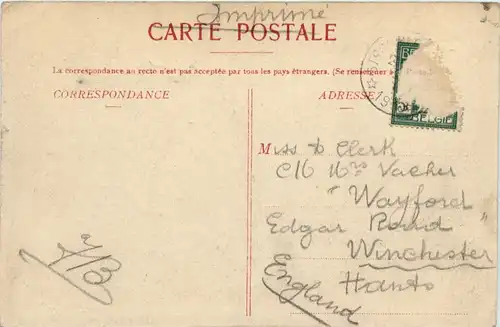 Imprimé
CARTE POSTALE
La correspondance au recto n'est pas acceptée par tous les pays étrangers. (Se renseigner à la Poste
CORRESPONDANCE
ADRESSE
Miss D Clerk
C/o Mrs Vacher
"Wayford"
Edgar Road
Winchester
Hants
England